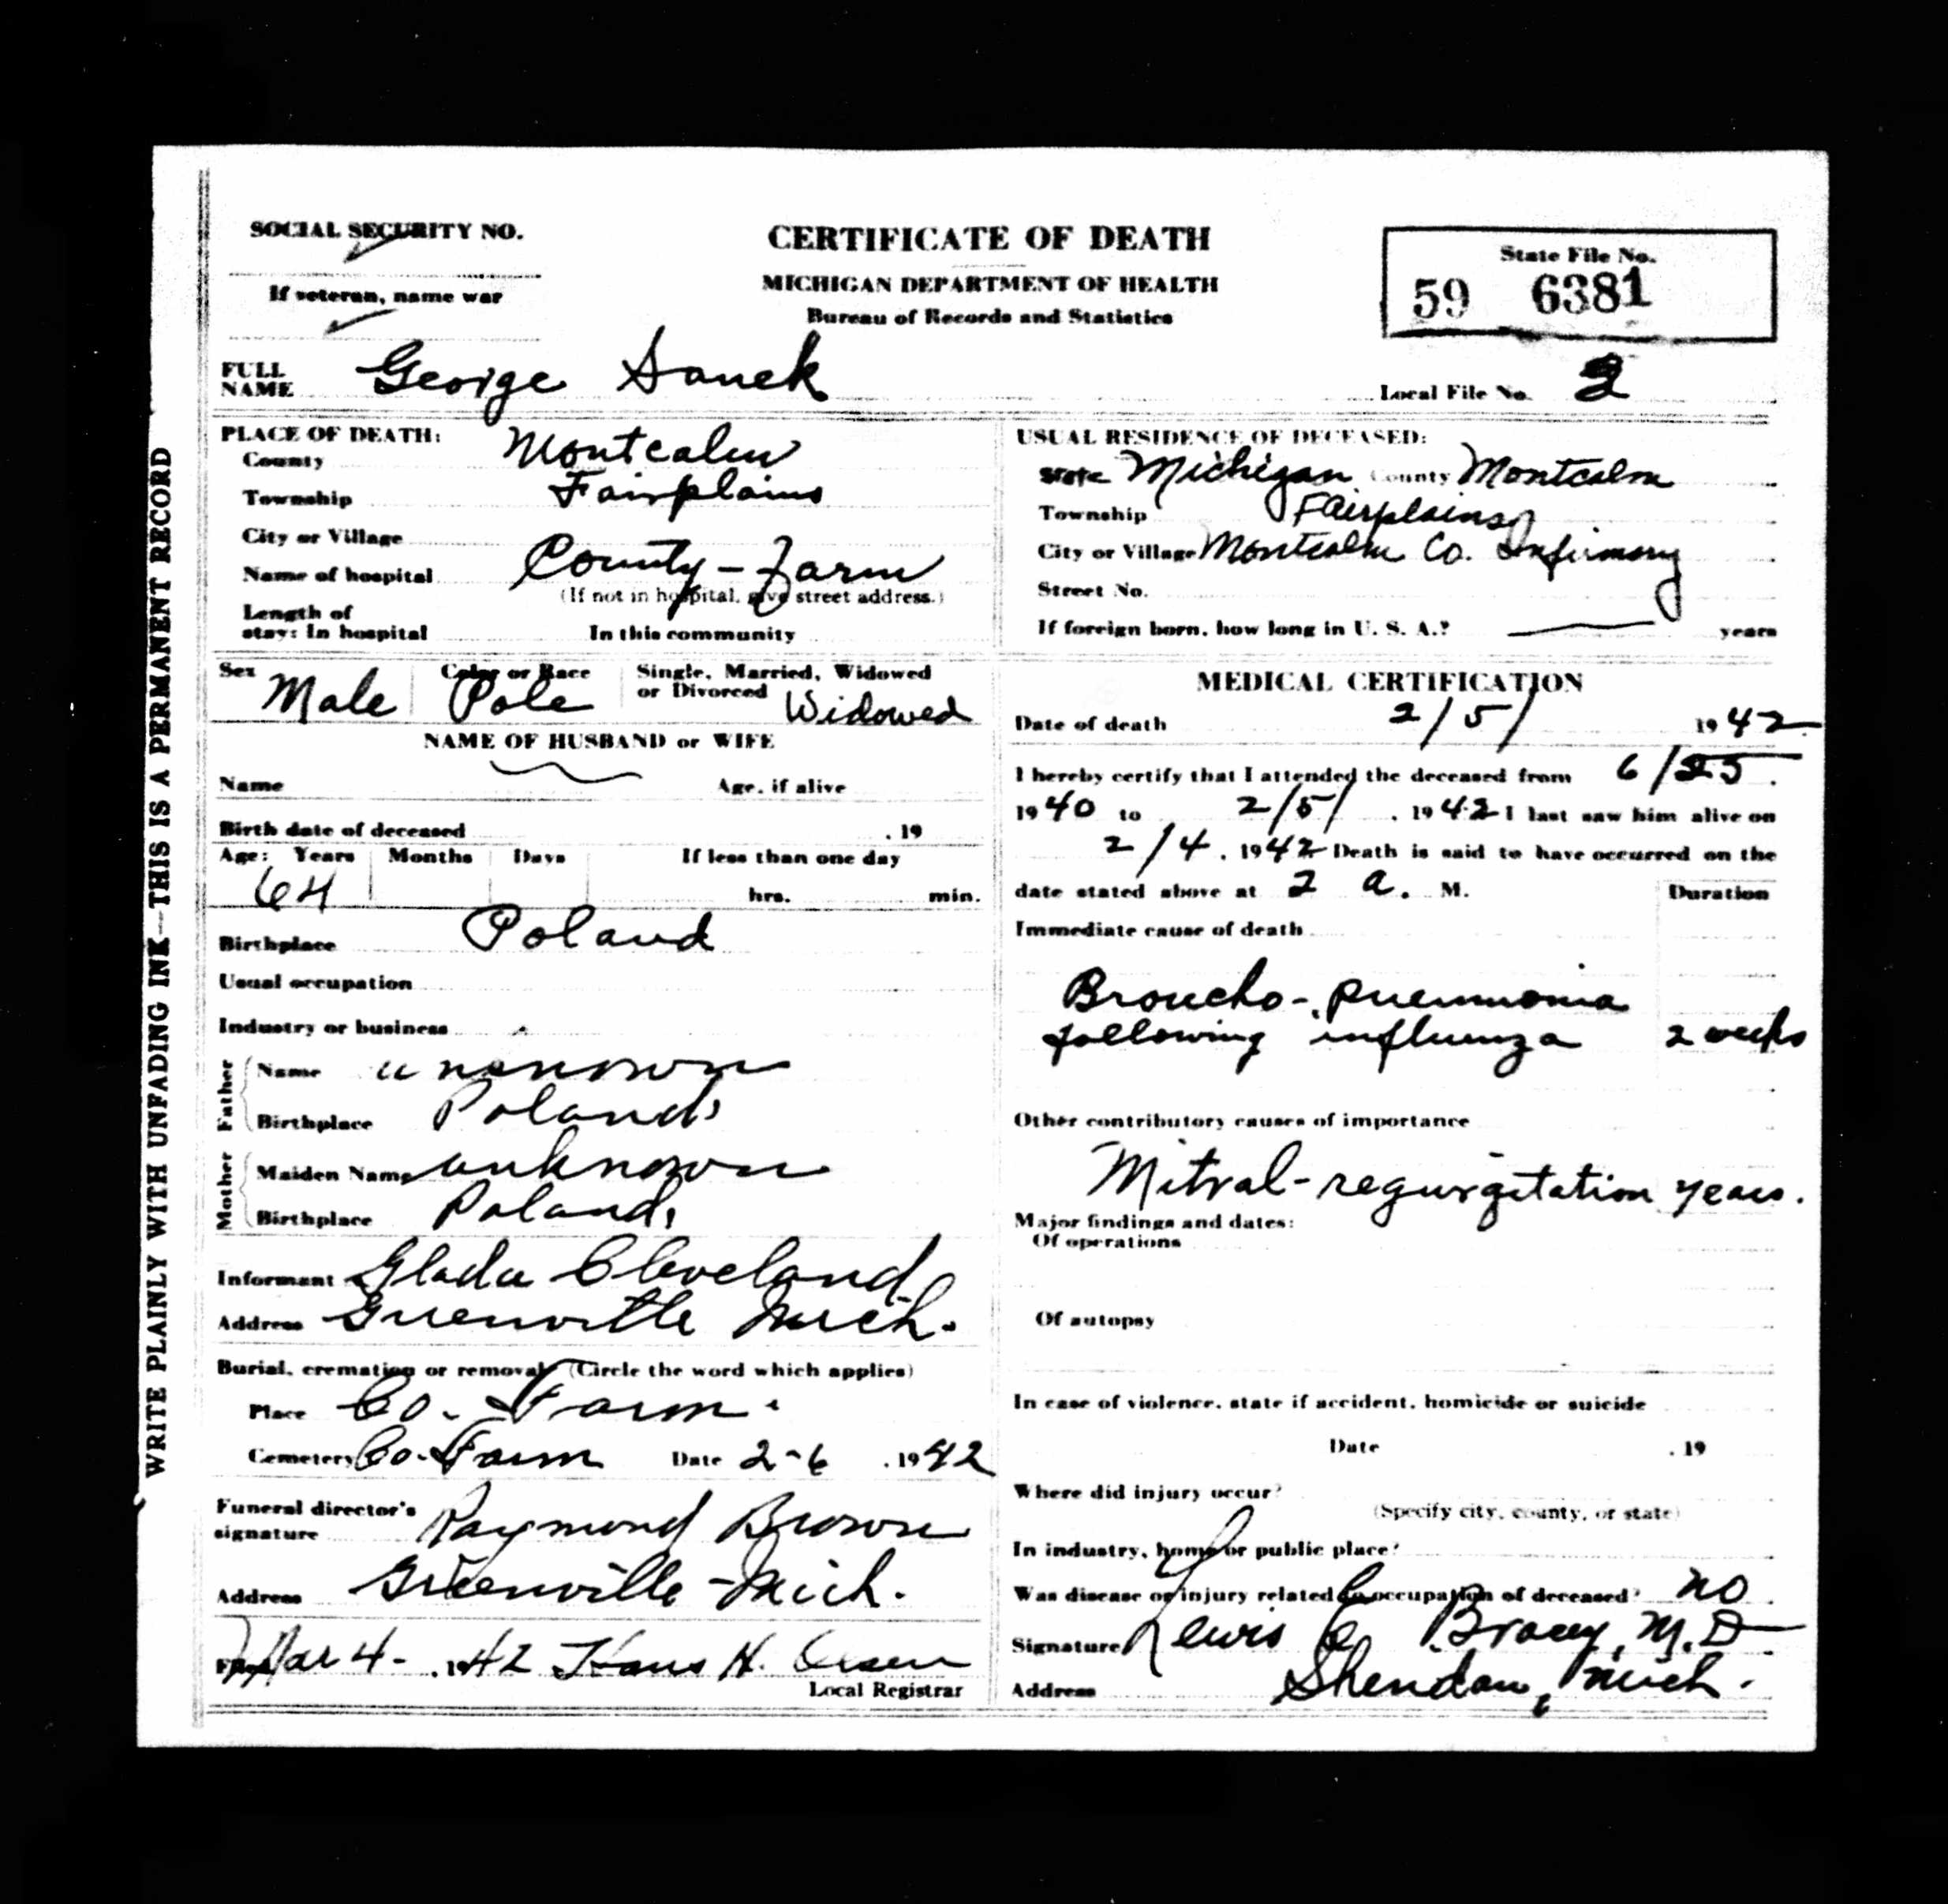 WRITE PLAINLY WITH UNFADING INK—THIS IS A PERMANENT RECORD
SOCIAL SECURITY NO.
If veteran, name war
CERTIFICATE OF DEATH
MICHIGAN DEPARTMENT OF HEALTH
Bureau of Records and Statistics
State File No.
59 6381
FULL NAME George Sanek
Local File No.
PLACE OF DEATH:
County Montcalm
Township Fairplains
City or Village
Name of hospital County-Farm
(If not in hospital, give street address.)
Length of
stay: In hospital In this community
USUAL RESIDENCE OF DECEASED:
State Michigan County Montcalm
Township Fairplains
City or Village Montcalm Co. Infirmary
Street No.
If foreign born, how long in U. S. A.? years
Sex Male
Color or Race Pole
Single, Married, Widowed
or Divorced Widowed
NAME OF HUSBAND or WIFE
Name Age, if alive
Birth date of deceased , 19
Age: Years Months Days If less than one day
64 hrs. min.
Birthplace Poland
Usual occupation
Industry or business
Father
Name unknown
Birthplace Poland
Mother
Maiden Name unknown
Birthplace Poland
Informant Cleveland
Address Greenville Mich.
Burial, cremation or removal (Circle the word which applies)
Place Co. Farm
Cemetery Co. Farm Date 2-6 , 1942
Funeral director's
signature Raymond Brown
Address Greenville - Mich.
Mar 4 - , 1942 Hans H. Olsen
Local Registrar
MEDICAL CERTIFICATION
Date of death 2/5/ 1942
I hereby certify that I attended the deceased from 6/25
1940 to 2/5/ , 1942 I last saw him alive on
2/4 , 1942 Death is said to have occurred on the
date stated above at 2 a. M. Duration
Immediate cause of death
Broncho-pneumonia
following influenza 2 weeks
Other contributory causes of importance
Mitral-regurgitation years.
Major findings and dates:
Of operations
Of autopsy
In case of violence, state if accident, homicide or suicide
Date , 19
Where did injury occur?
(Specify city, county, or state)
In industry, home or public place?
Was disease or injury related to occupation of deceased? no
Signature Lewis E. Bracey, M.D
Address Sheridan, Mich.